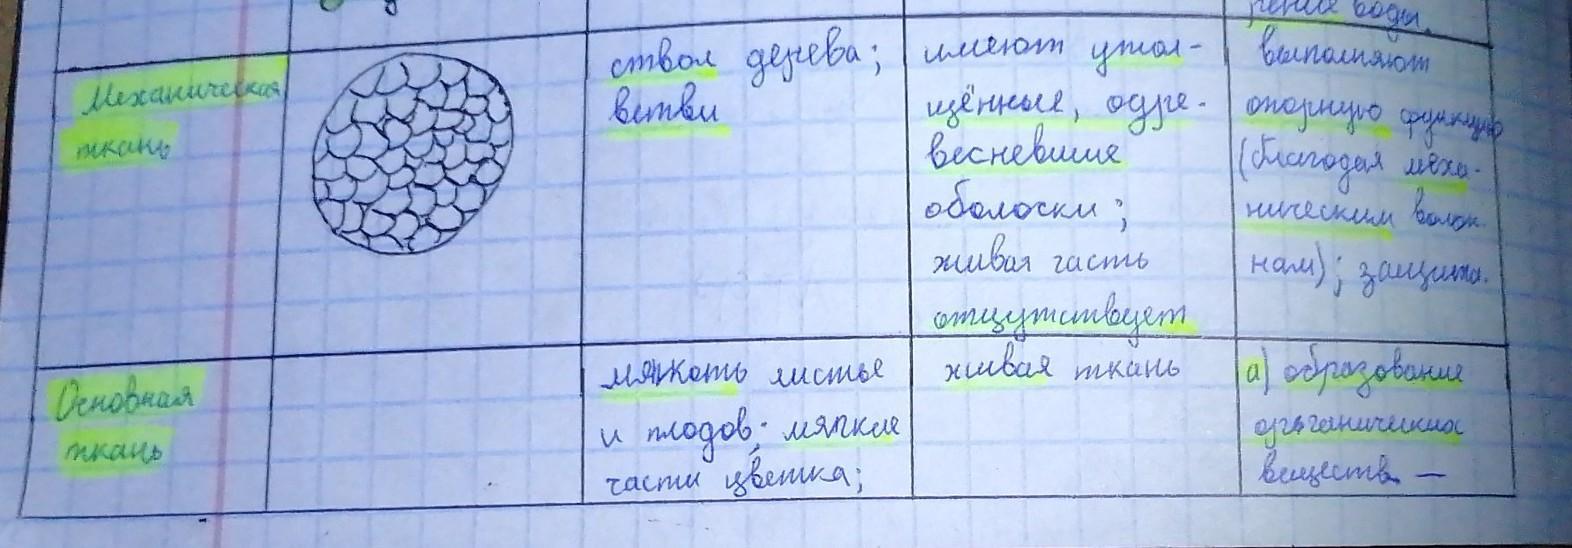 рение воды.
Механическая
ткань
ствол дерева;
ветви
имеют утол-
щённые, одре-
весневшие
оболоски;
живая часть
отцутствует
выполняют
опорную функцию
(благодая меха-
ническим волок-
нам); защита.
Основная
ткань
мякоть листье
и плодов; мягкие
части цветка;
живая ткань
а) образование
органических
веществ —